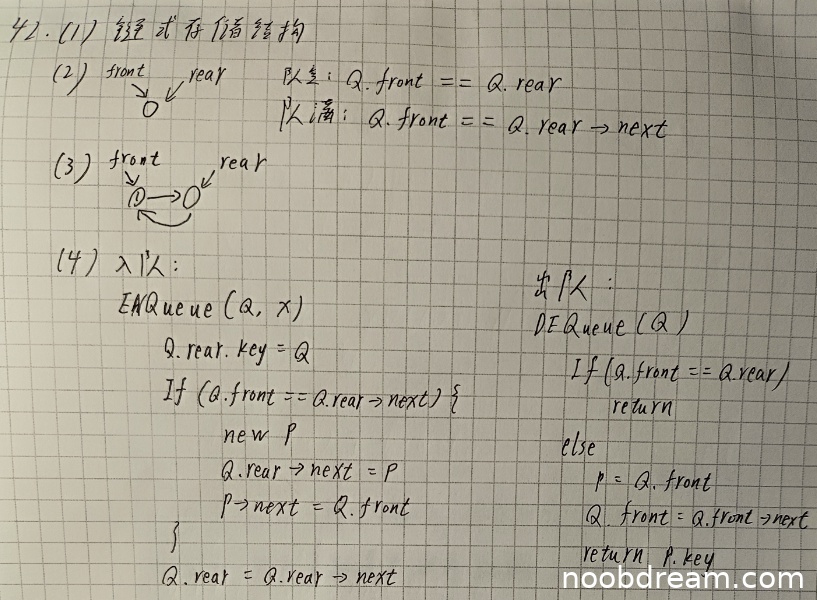 42.(1) 链式存储结构
(2) front rear 队空: Q.front == Q.rear
队满: Q.front == Q.rear→next
(3) front rear
1
(4) 入队:
ENQueue(Q, x)
Q.rear.key = Q
If (Q.front == Q.rear→next) {
new P
Q.rear→next = P
P→next = Q.front
}
Q.rear = Q.rear→next
出队:
DEQueue(Q)
If(Q.front == Q.rear)
return
else
p = Q.front
Q.front = Q.front→next
return p.key
noobdream.com